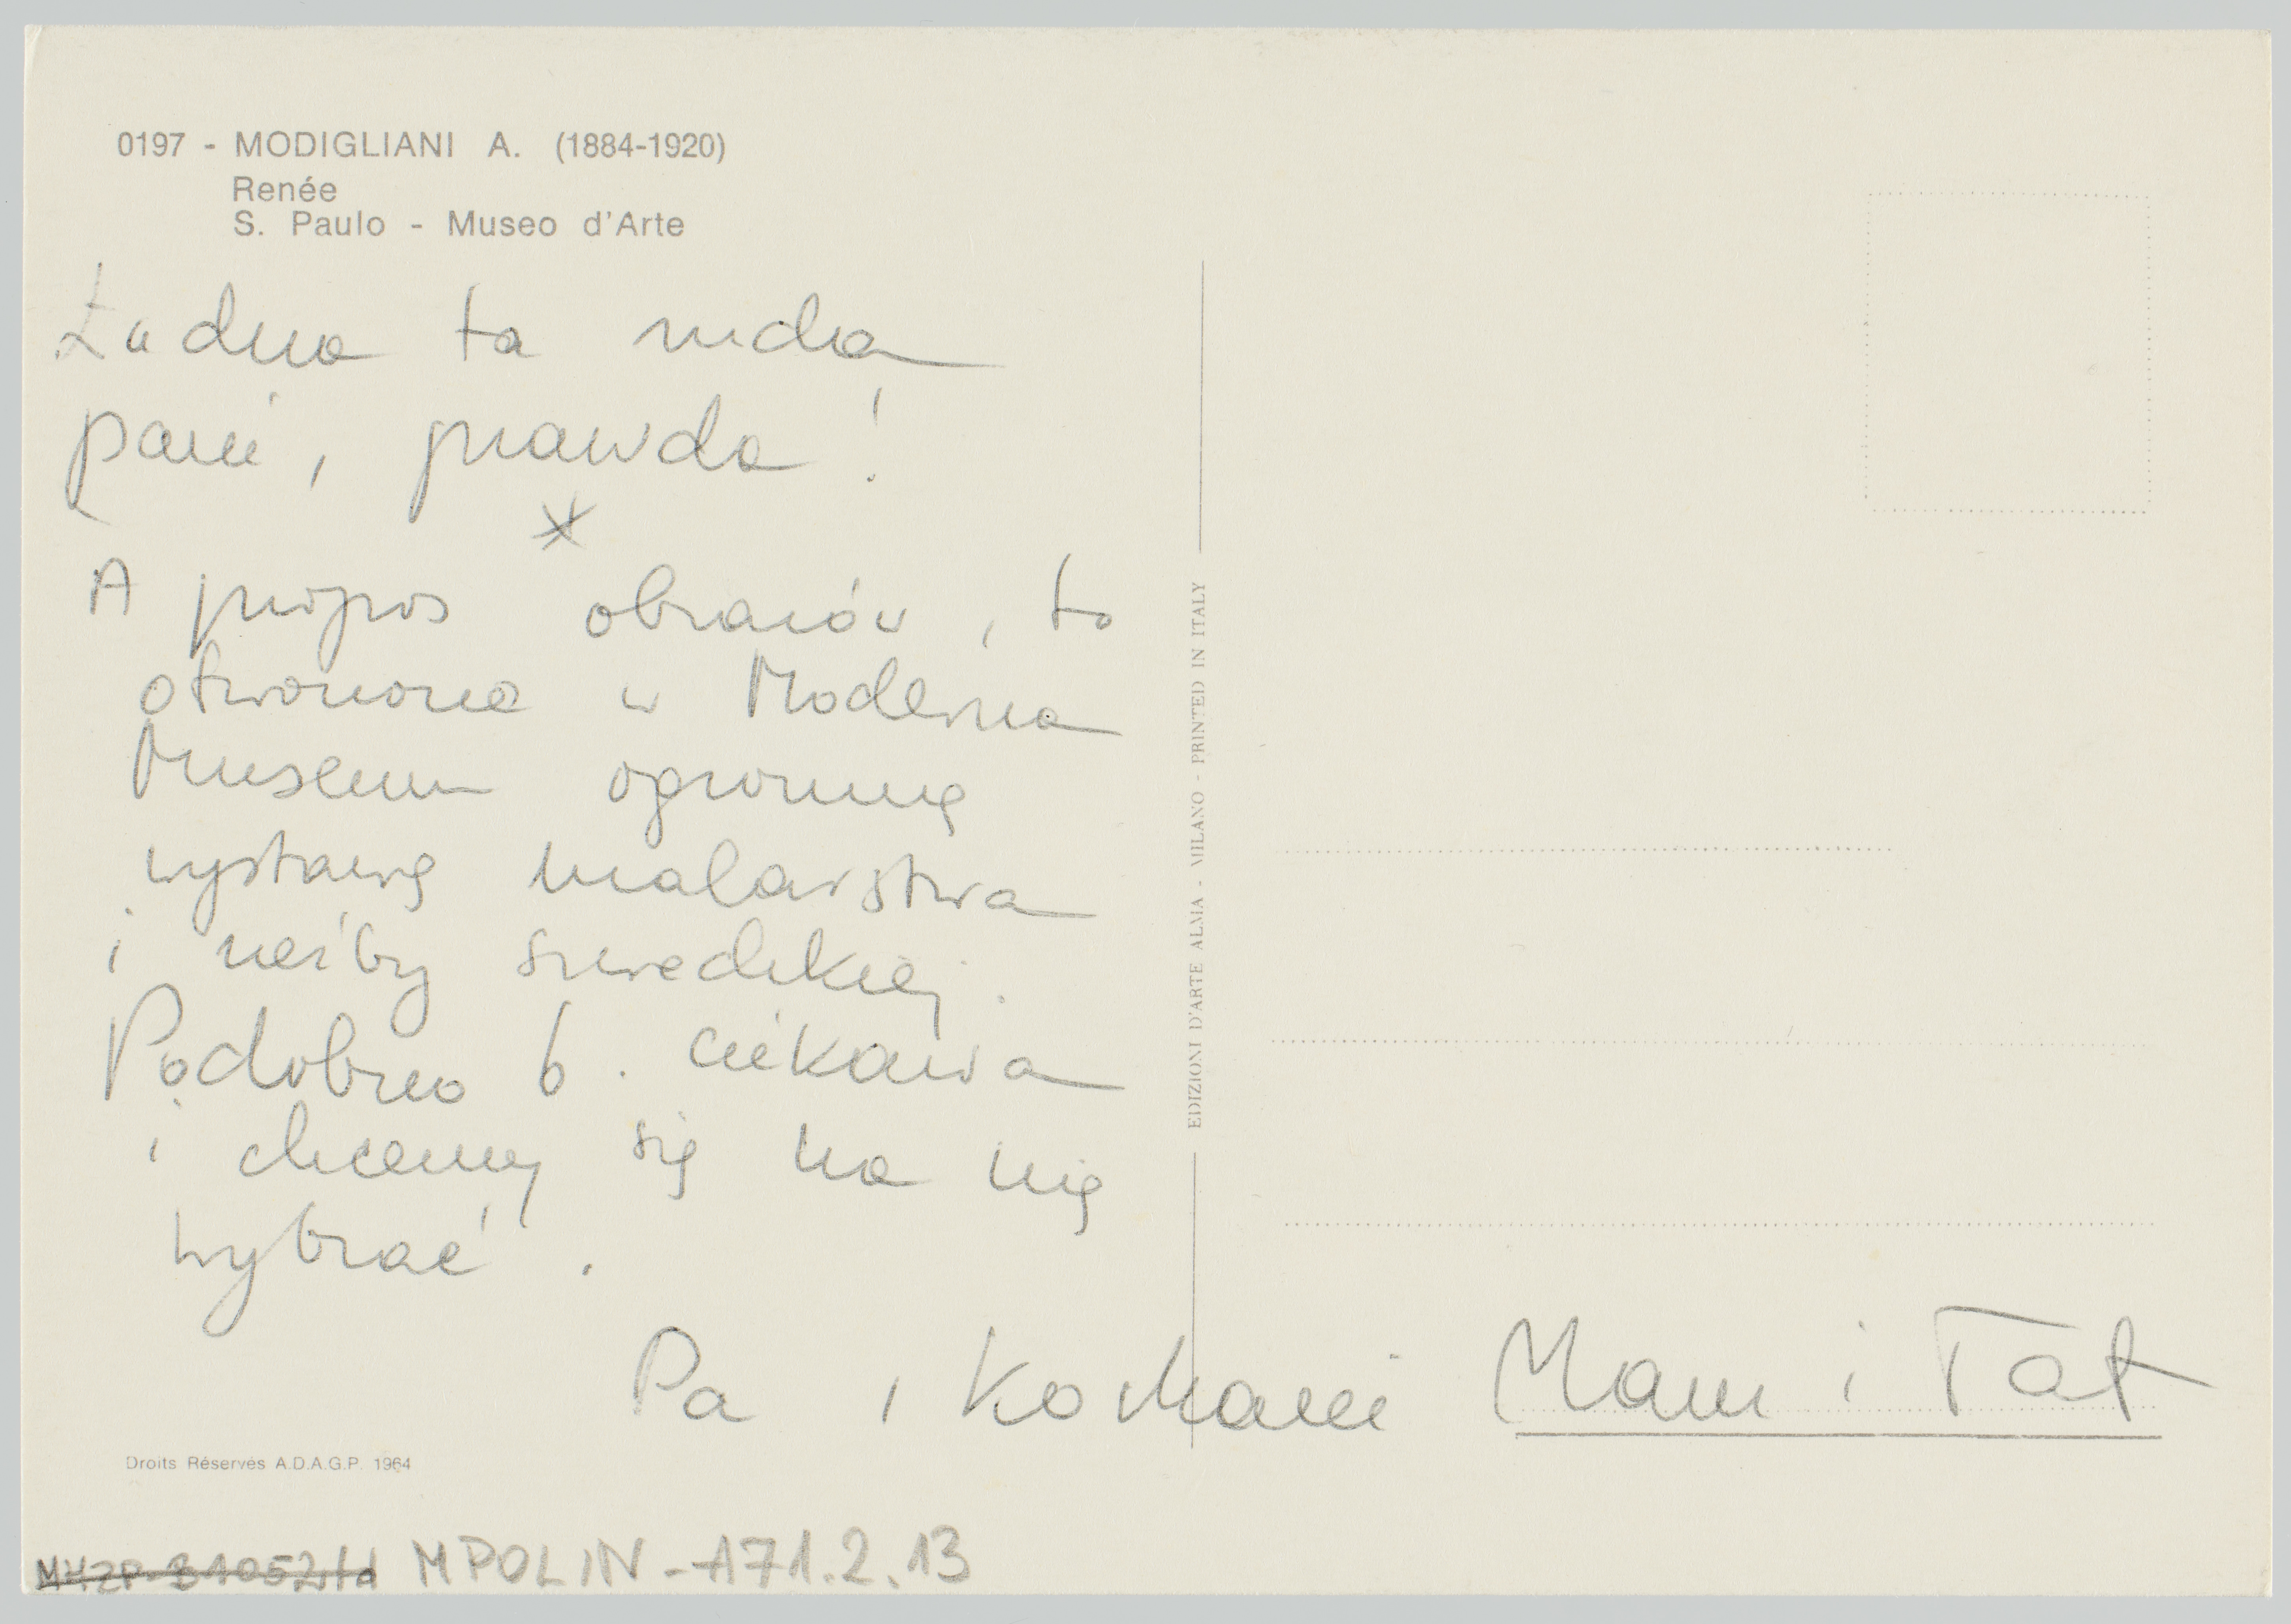 0197 - MODIGLIANI A. (1884-1920)
Renée
S. Paulo - Museo d'Arte
Ładna ta ruda
pani, prawda!
*
A propos obrazów, to
otworzono w Moderna
Museum ogromną
wystawę malarstwa
i rzeźby szwedzkiej.
Podobno b. ciekawa
i chcemy się na nią
wybrać.
Pa, kochani Mam i Tat
EDIZIONI D'ARTE ALMA - MILANO - PRINTED IN ITALY
Droits Réservés A.D.A.G.P. 1964
MPOLIN-A71.2.13